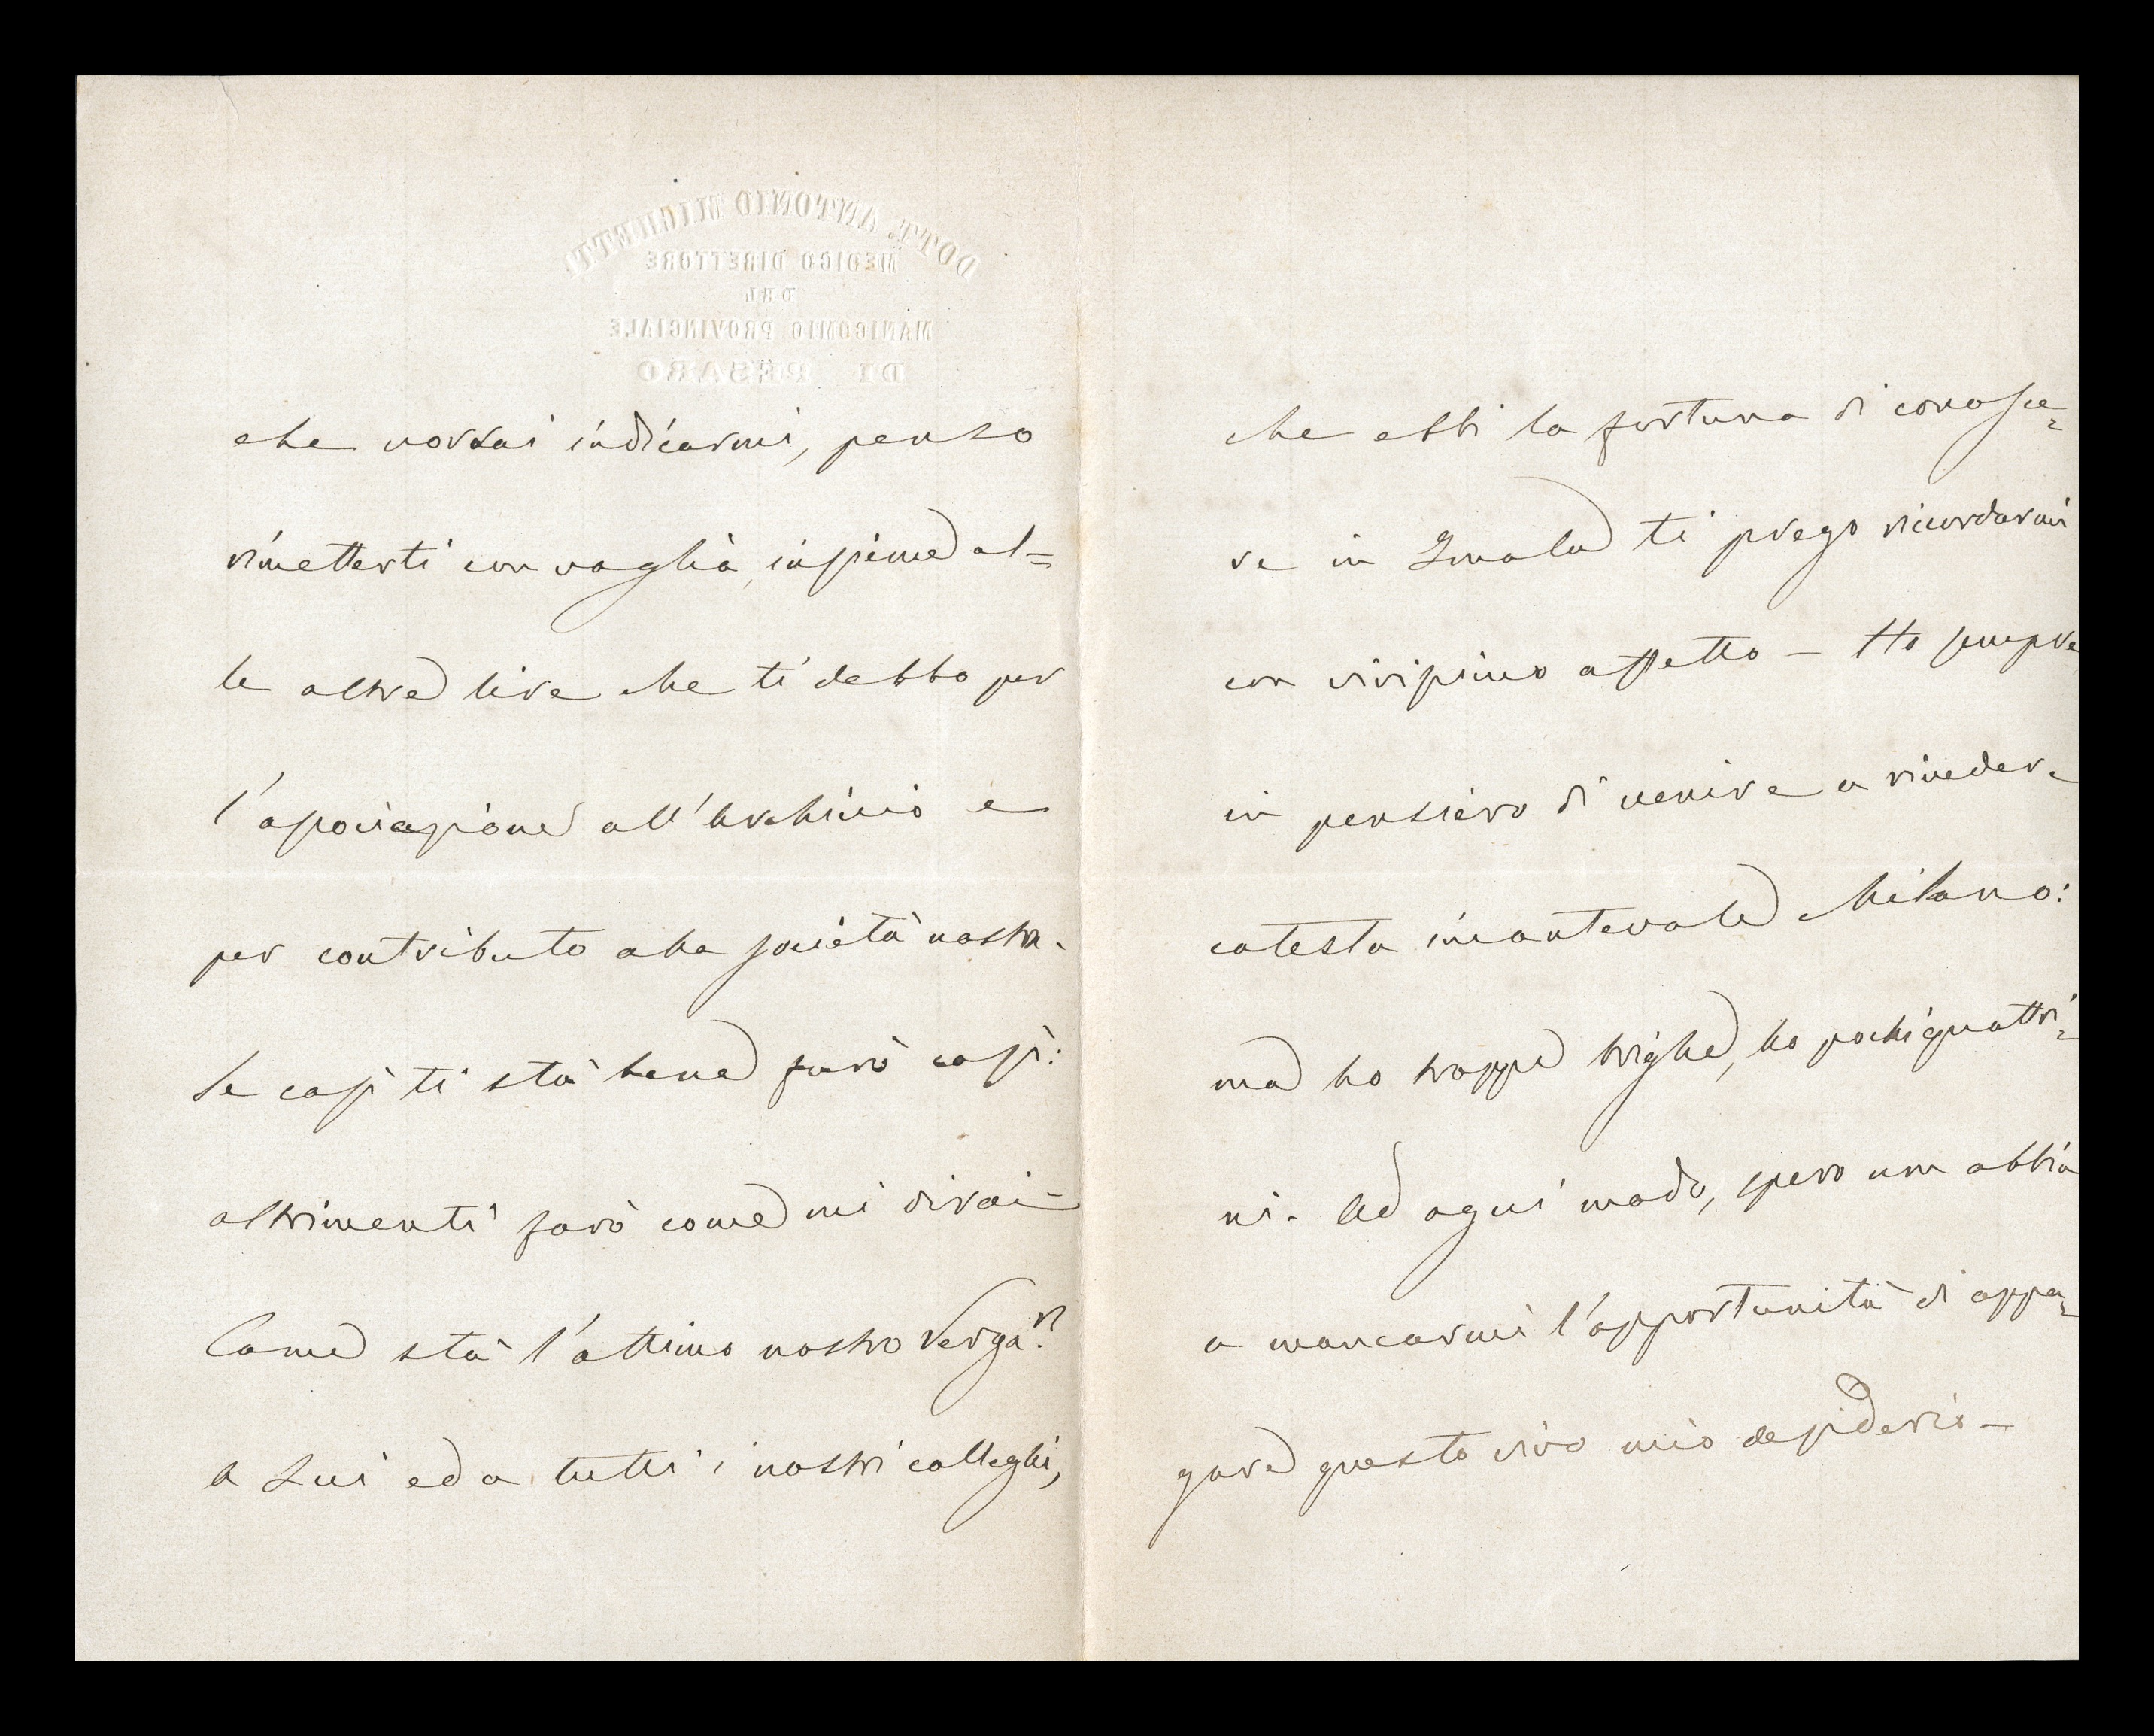 DOTT. ANTONIO MICHETTI
MEDICO DIRETTORE
DEL
MANICOMIO PROVINCIALE
DI PESARO
che vorrai indicarmi, penso
rimetterti con vaglia, insieme al=
le altre lire che ti debbo per
l'associazione all'Archivio e
per contributo alla società nostra.
Se così ti stà bene farò così:
altrimenti farò come mi dirai –
Come stà l'ottimo nostro Verga?
A Lui ed a tutti i nostri colleghi,
che ebbi la fortuna di conosce=
re in Imola ti prego ricordarmi
con vivissimo affetto – Ho sempre
in pensiero di venire a rivedere
cotesta incantevole Milano:
ma ho troppe brighe, ho pochi quattri=
ni. Ad ogni modo, spero non abbia
a mancarmi l'opportunità di appa=
gare questo vivo mio desiderio –